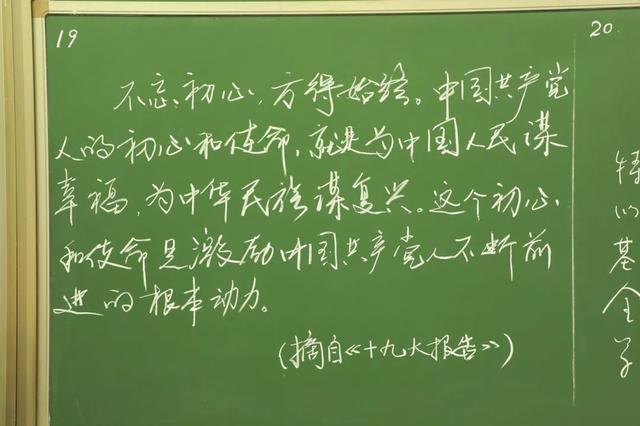 19
不忘初心,方得始终。中国共产党
人的初心和使命,就是为中国人民谋
幸福,为中华民族谋复兴。这个初心
和使命是激励中国共产党人不断前
进的根本动力。
(摘自《十九大报告》)
20
的
基
金